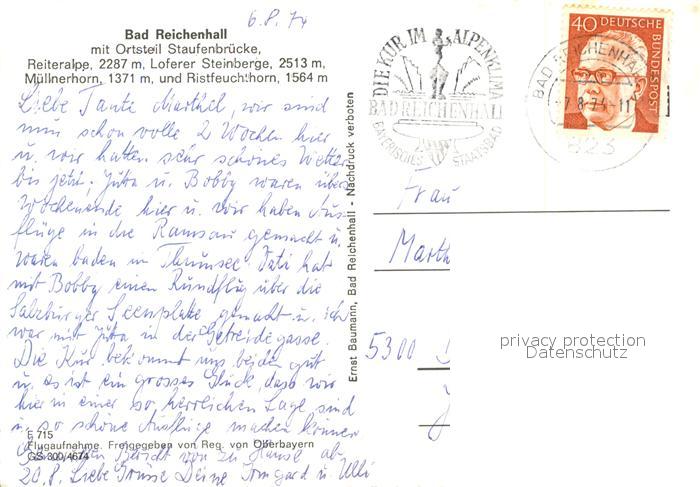 6.8.74
Bad Reichenhall
mit Ortsteil Staufenbrücke,
Reiteralpe, 2287 m, Loferer Steinberge, 2513 m,
Müllnerhorn, 1371 m, und Ristfeuchthorn, 1564 m
Liebe Tante Marthel, wir sind
nun schon volle 2 Wochen hier
u. wir hatten sehr schönes Wetter
bis jetzt. Jutta u. Bobby waren übers
Wochenende hier u. wir haben Aus-
flüge in die Ramsau gemacht u.
waren baden in Thumsee. Vati hat
mit Bobby einen Rundflug über die
Salzburger Seenplatte gemacht u. ich
war mit Jutta in der Getreidegasse.
Die Kur bekommt uns beiden gut
u. es ist ein grosses Glück, dass wir
hier in einer so herrlichen Lage sind
u. so schöne Ausflüge machen können
F 715
Flugaufnahme. Freigegeben von Reg. von Oberbayern
GS 300/4674
Bericht von zu Hause ab
20.8. Liebe Grüsse Deine Irmgard u. Ulli
Ernst Baumann, Bad Reichenhall - Nachdruck verboten
DIE KUR IM ALPENKLIMA
BAD REICHENHALL
BAYERISCHES STAATSBAD
BAD REICHENHALL
-7.8.74-11
823
40 DEUTSCHE BUNDESPOST
Frau
Marth
5300
privacy protection
Datenschutz